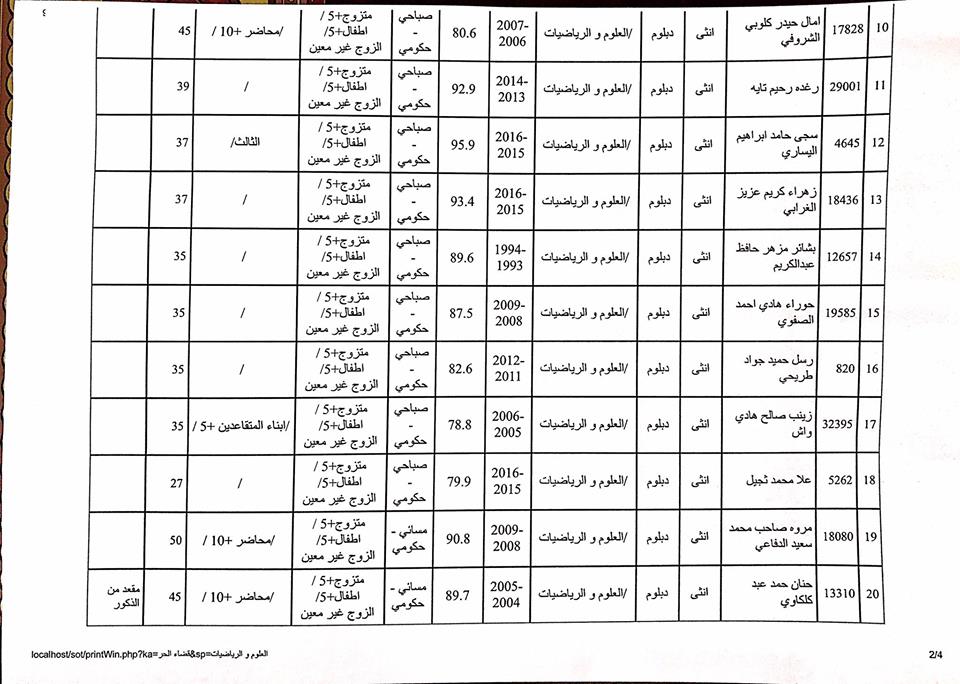 ٤
10 17828 امال حيدر كلوبي الشروفي انثى دبلوم /العلوم و الرياضيات 2007-2006 80.6 صباحي - حكومي متزوج+5 / اطفال+5/ الزوج غير معين /محاضر +10 / 45
11 29001 رغده رحيم تايه انثى دبلوم /العلوم و الرياضيات 2014-2013 92.9 صباحي - حكومي متزوج+5 / اطفال+5/ الزوج غير معين / 39
12 4645 سجى حامد ابراهيم اليساري انثى دبلوم /العلوم و الرياضيات 2016-2015 95.9 صباحي - حكومي متزوج+5 / اطفال+5/ الزوج غير معين الثالث/ 37
13 18436 زهراء كريم عزيز الغرابي انثى دبلوم /العلوم و الرياضيات 2016-2015 93.4 صباحي - حكومي متزوج+5 / اطفال+5/ الزوج غير معين / 37
14 12657 بشائر مزهر حافظ عبدالكريم انثى دبلوم /العلوم و الرياضيات 1994-1993 89.6 صباحي - حكومي متزوج+5 / اطفال+5/ الزوج غير معين / 35
15 19585 حوراء هادي احمد الصفوي انثى دبلوم /العلوم و الرياضيات 2009-2008 87.5 صباحي - حكومي متزوج+5 / اطفال+5/ الزوج غير معين / 35
16 820 رسل حميد جواد طريحي انثى دبلوم /العلوم و الرياضيات 2012-2011 82.6 صباحي - حكومي متزوج+5 / اطفال+5/ الزوج غير معين / 35
17 32395 زينب صالح هادي واش انثى دبلوم /العلوم و الرياضيات 2006-2005 78.8 صباحي - حكومي متزوج+5 / اطفال+5/ الزوج غير معين /ابناء المتقاعدين +5 / 35
18 5262 علا محمد ثجيل انثى دبلوم /العلوم و الرياضيات 2016-2015 79.9 صباحي - حكومي متزوج+5 / اطفال+5/ الزوج غير معين / 27
19 18080 مروه صاحب محمد سعيد الدفاعي انثى دبلوم /العلوم و الرياضيات 2009-2008 90.8 مسائي - حكومي متزوج+5 / اطفال+5/ الزوج غير معين /محاضر +10 / 50
20 13310 حنان حمد عبد كلكاوي انثى دبلوم /العلوم و الرياضيات 2005-2004 89.7 مسائي - حكومي متزوج+5 / اطفال+5/ الزوج غير معين /محاضر +10 / 45 مقعد من الذكور
localhost/sot/printWin.php?ka=قضاء الحر&sp=العلوم و الرياضيات
2/4